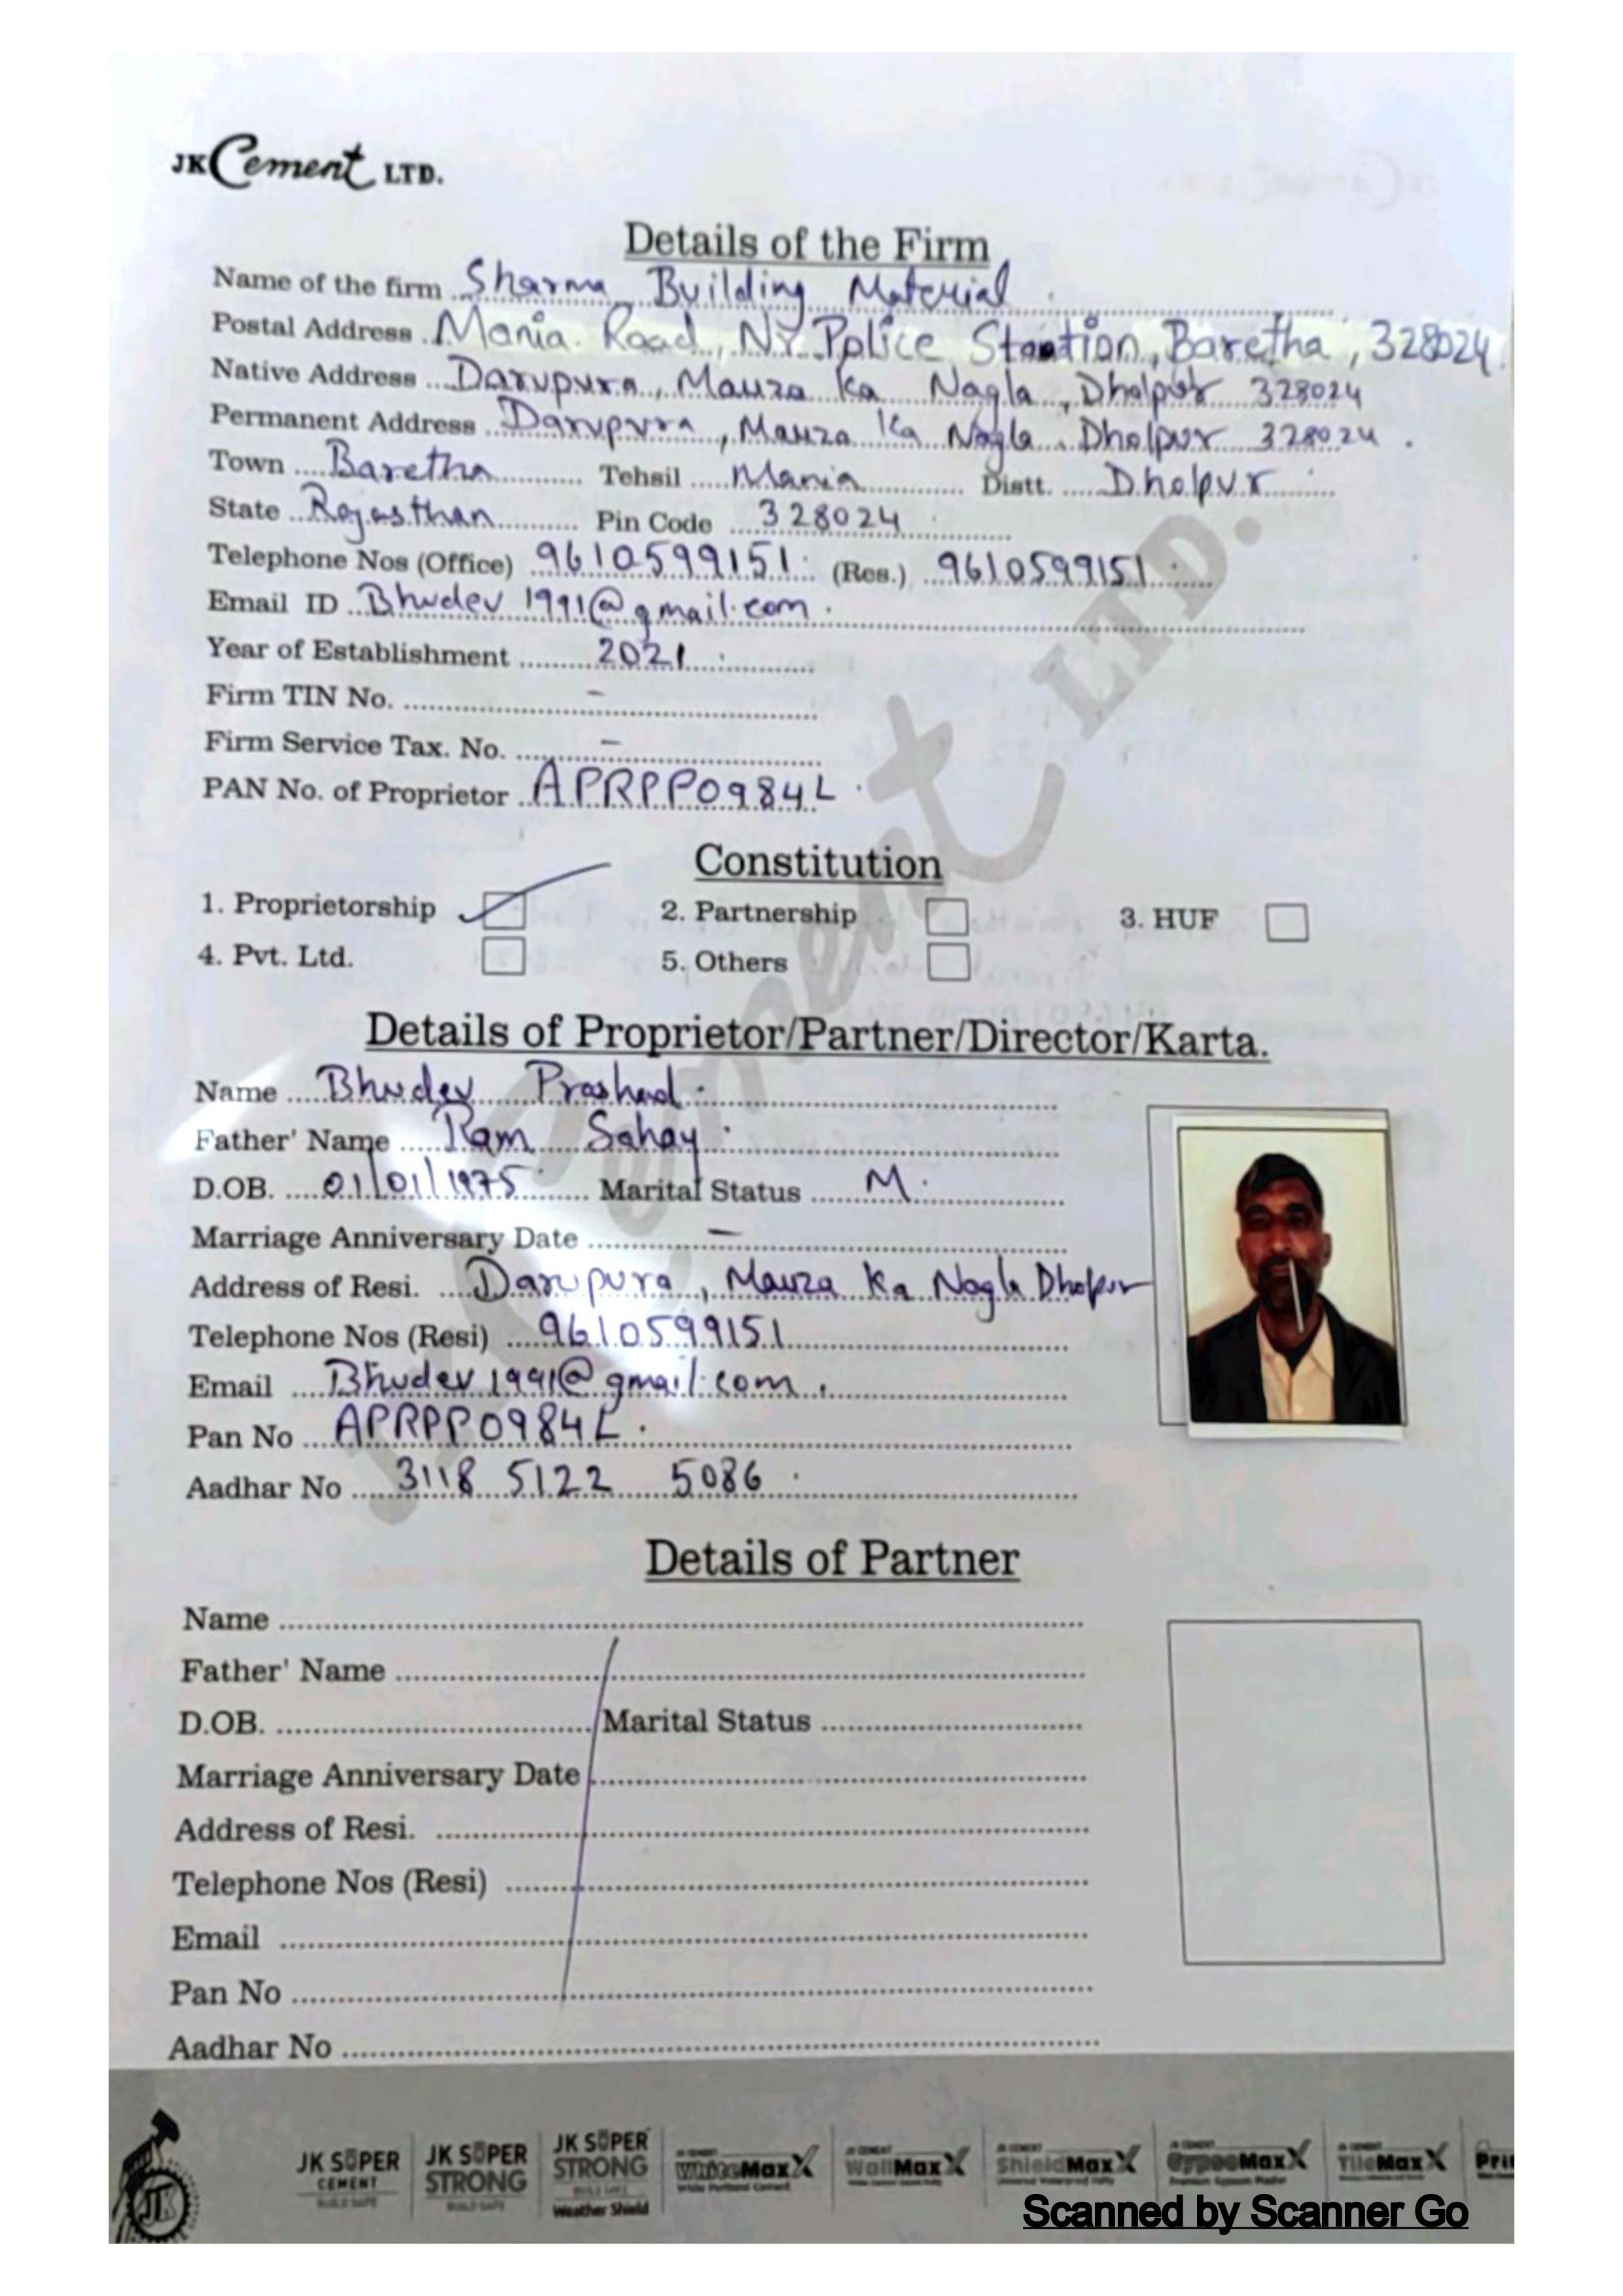 JK Cement LTD.
Details of the Firm
Name of the firm Sharma Building Material
Postal Address Mania Road, Nr Police Staation, Baretha, 328024
Native Address Darupura, Mauza ka Nagla, Dholpur 328024
Permanent Address Darupura, Mauza Ka Nagla, Dholpur 328024.
Town Baretha Tehsil Mania Distt. Dholpur
State Rajasthan Pin Code 328024
Telephone Nos (Office) 9610599151 (Res.) 9610599151
Email ID Bhudev1991@gmail.com
Year of Establishment 2021
Firm TIN No. –
Firm Service Tax. No. –
PAN No. of Proprietor APRPP0984L
Constitution
1. Proprietorship ✓ 2. Partnership 3. HUF
4. Pvt. Ltd. 5. Others
Details of Proprietor/Partner/Director/Karta.
Name Bhudev Prashad
Father' Name Ram Sahay
D.OB. 01/01/1975 Marital Status M
Marriage Anniversary Date –
Address of Resi. Darupura, Mauza Ka Nagla Dholpur
Telephone Nos (Resi) 9610599151
Email Bhudev1991@gmail.com
Pan No APRPP0984L
Aadhar No 3118 5122 5086
Details of Partner
Name
Father' Name
D.OB. Marital Status
Marriage Anniversary Date
Address of Resi.
Telephone Nos (Resi)
Email
Pan No
Aadhar No
JK Cement LTD.
JK SUPER CEMENT BUILD SAFE
JK SUPER STRONG BUILD SAFE
JK SUPER STRONG BUILD SAFE Weather Shield
JK CEMENT WhiteMaxX White Portland Cement
JK CEMENT WallMaxX
JK CEMENT ShieldMaxX
JK CEMENT GypsoMaxX Premium Gypsum Plaster
JK CEMENT TileMaxX
Pri
JK
Scanned by Scanner Go